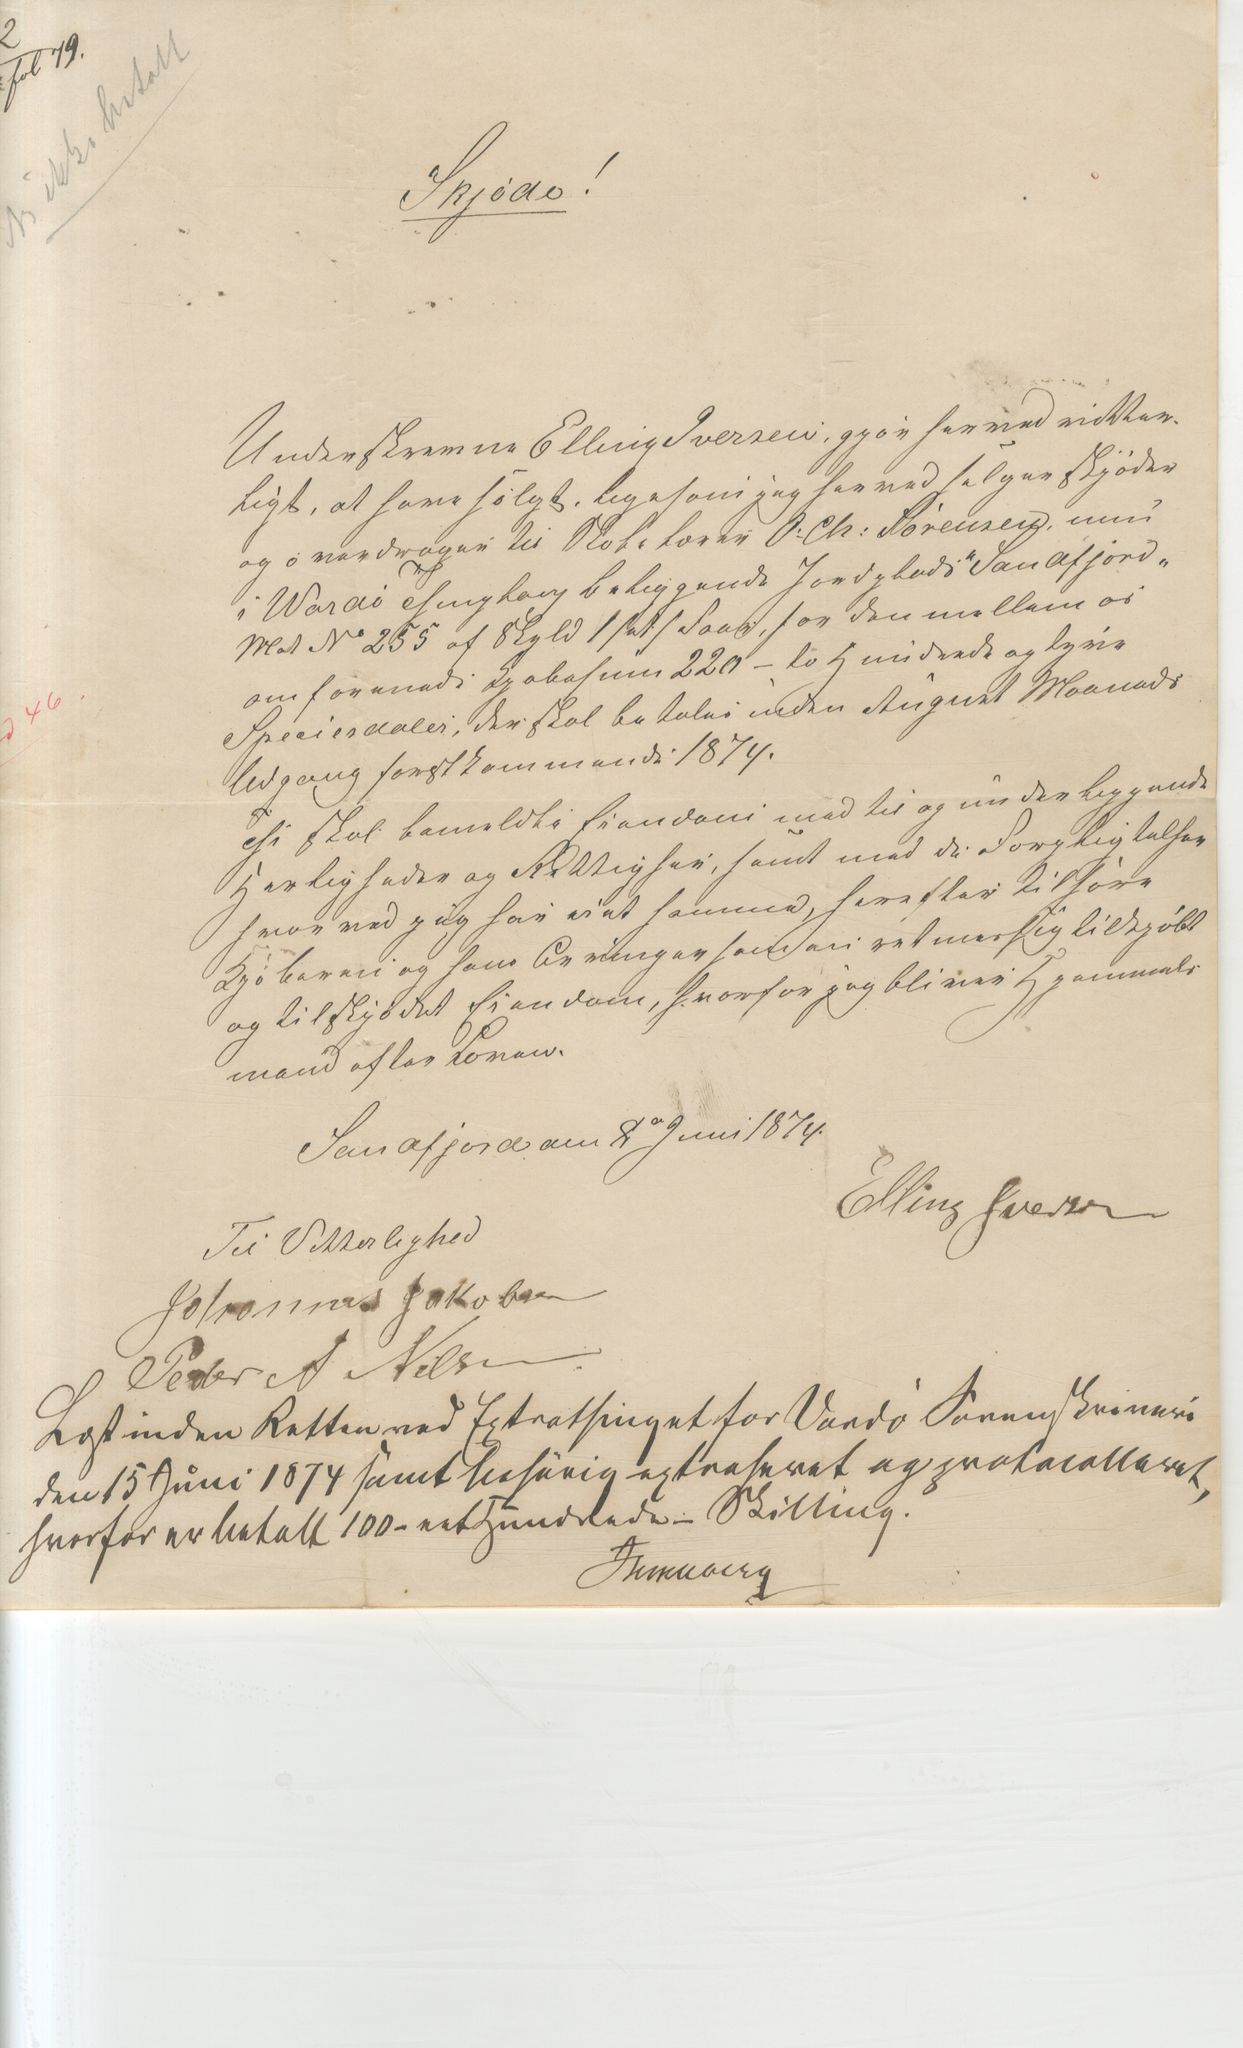 2
fol 79.
ikke betalt
Skjøde!
Underskrevne Elling Iversen, gjør herved vitter-
ligt, at have sølgt, ligesom jeg herved sælger skjøder
og overdrager til O: Ch: Sørensen, min
i Wardø Thinglaug beliggende Jordplads "Sandfjord"
Mat No 255 af Skyld 1 for den mellem os
omforenede Kjøbesum 220 – to Hundrede og tyve
Speciesdaler, der skal betales inden August Maaneds
Udgang førstkommende 1874.
Thi skal bemeldte Eiendom med til og underliggende
Herligheder og Rettigher, samt med de Forpligtelser
hvorved jeg har eiet samme, herefter tilhøre
Kjøberen og hans Arvinger som en retmessig tilkjøbt
og tilskjødet Eiendom, hvorfor jeg bliver Hjemmels
mand efter Loven.
Sandfjord den 8de Juni 1874.
Elling Iversen
Til Vitterlighed
Johannes Jakobsen
Peder A Nilsen
Læst inden Retten ved Extrathinget for Vardø Sorenskriveri
den 15 Juni 1874 samt behørig extraheret og protocolleret,
hvorfor er betalt 100 – eethundrede – Skilling.